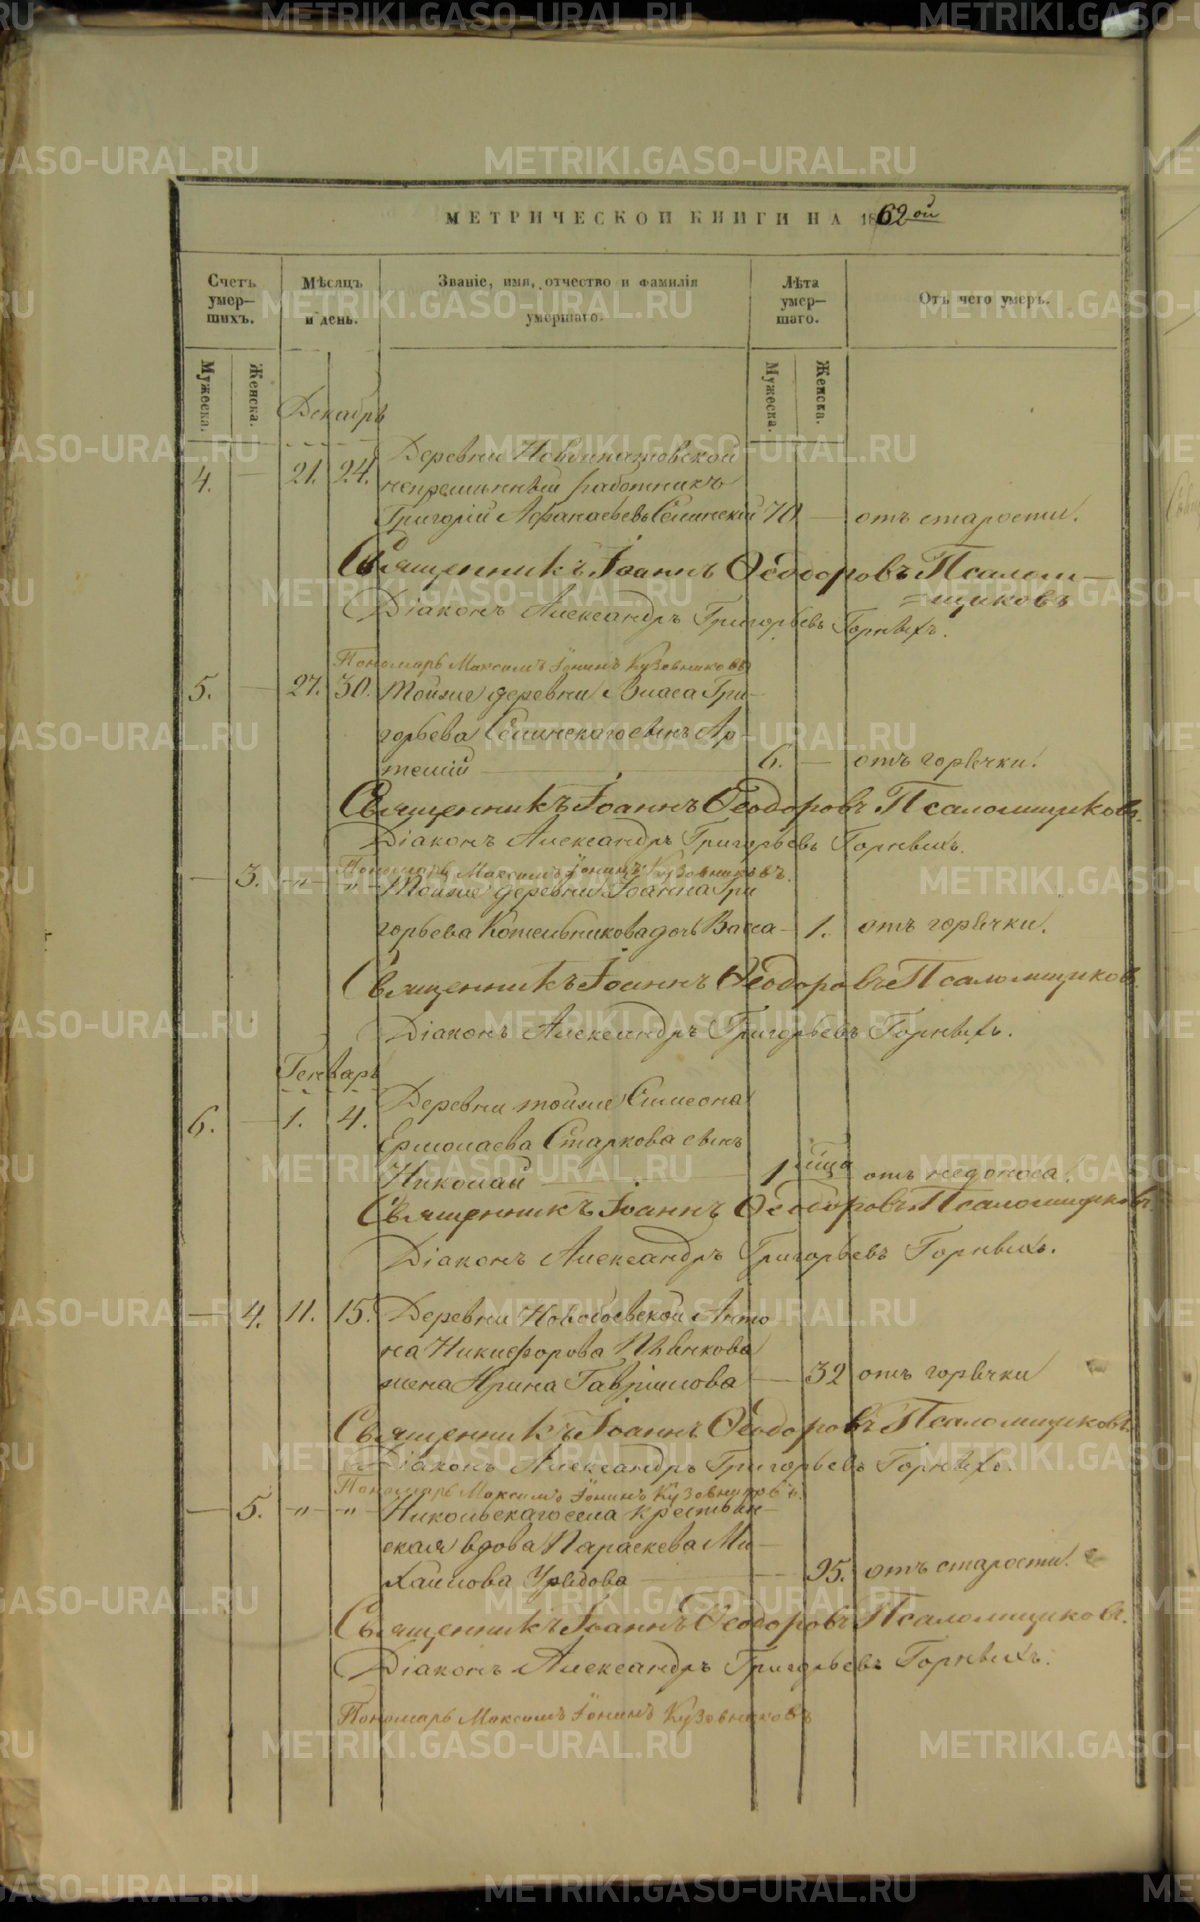 МЕТРИЧЕСКОЙ КНИГИ НА 1862ой
Счетъ умер-шихъ.
Мѣсяцъ и день.
Званіе, имя, отчество и фамилія умершаго.
Лѣта умер-шаго.
Отъ чего умеръ.
Мужеска.
Женска.
Мужеска.
Женска.
Декабрь
Деревни Новоипатовской
4. — 21. 24. непремѣнный работникъ
Григорій Афанасьевъ Селинскій 70 — отъ старости.
Священникъ Іоаннъ Ѳеодоровъ Псаломщиковъ
Діаконъ Александръ Григорьевъ Горныхъ.
Пономарь Максимъ Іонинъ Кузовниковъ
5. — 27. 30. Тойже деревни Власа Гри-
горьева Селинскаго сынъ Ар-
темій 6. — отъ горячки.
Священникъ Іоаннъ Ѳеодоровъ Псаломщиковъ.
Діаконъ Александръ Григорьевъ Горныхъ.
Пономарь Максимъ Іонинъ Кузовниковъ.
— 3. — " — " — Тойже деревни Іоанна Гри
горьева Котельникова дочь Васса — 1. отъ горячки.
Священникъ Іоаннъ Ѳеодоровъ Псаломщиковъ.
Діаконъ Александръ Григорьевъ Горныхъ.
Генварь
6. — 1. 4. Деревни тойже Симеона
Ермолаева Старкова сынъ
Николай — 1 отъ недоноса.
Священникъ Іоаннъ Ѳеодоровъ Псаломщиковъ.
Діаконъ Александръ Григорьевъ Горныхъ.
— 4. 11. 15. Деревни Антo
на Никифорова Пѣнкова
жена Ирина Гавріилова — 32 отъ горячки
Священникъ Іоаннъ Ѳеодоровъ Псаломщиковъ.
Діаконъ Александръ Григорьевъ Горныхъ.
Пономарь Максимъ Іонинъ Кузовниковъ.
— 5. — " — " — Никольскаго села крестьян-
ская вдова Параскева Ми-
хаилова — 95. отъ старости.
Священникъ Іоаннъ Ѳеодоровъ Псаломщиковъ.
Діаконъ Александръ Григорьевъ Горныхъ.
Пономарь Максимъ Іонинъ Кузовниковъ
METRIKI.GASO-URAL.RU